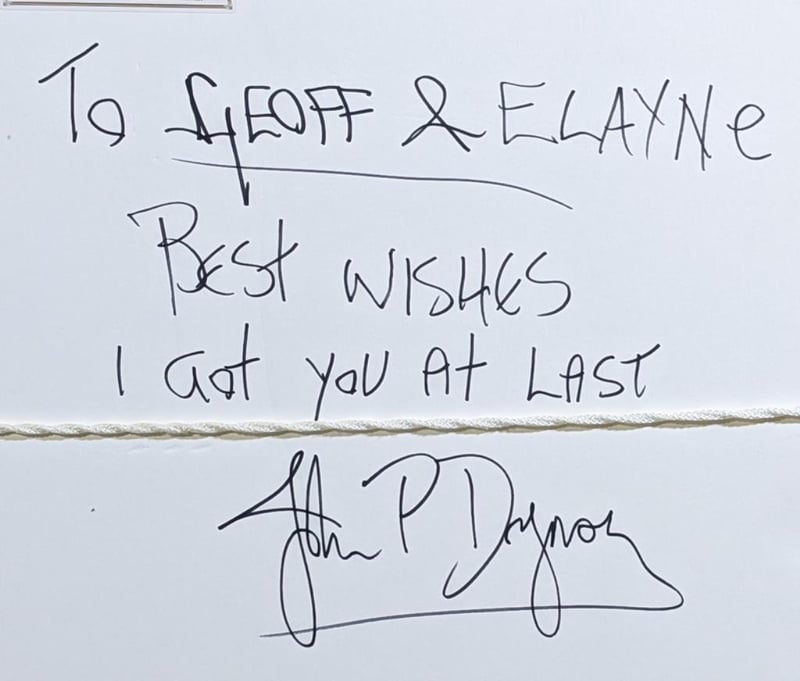 To GEOFF & ELAYNe
BEST WISHES
I Got YOU At LAST
John P